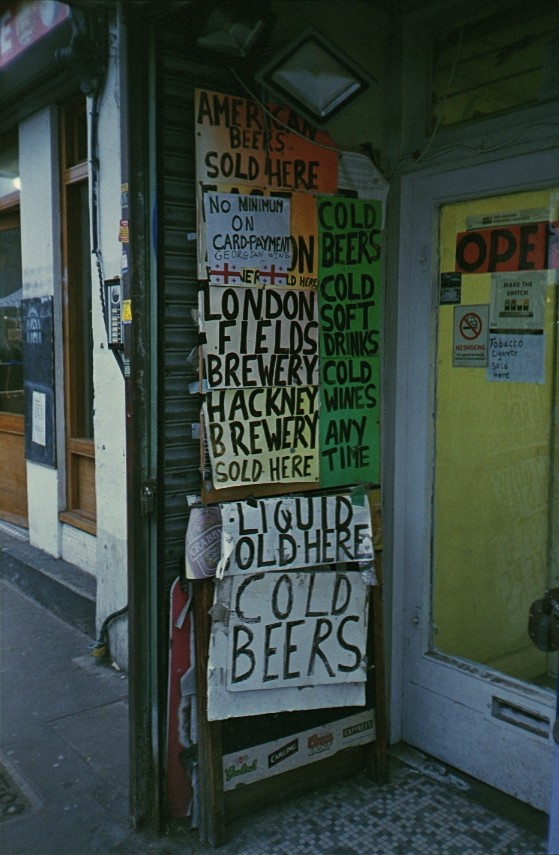 AMERICAN
BEERS
SOLD HERE
NO MINIMUM
ON
CARD-PAYMENT
GEORGIAN WINE
ON
HERE
LONDON
FIELDS
BREWERY
HACKNEY
BREWERY
SOLD HERE
COLD
BEERS
COLD
SOFT
DRINKS
COLD
WINES
ANY
TIME
LIQUID
SOLD HERE
COLD
BEERS
Grolsch
CARLING
Coors
CAFFREY'S
OPE
MAKE THE
SWITCH
NO SMOKING
Tobacco
Cigarete
Sold
here